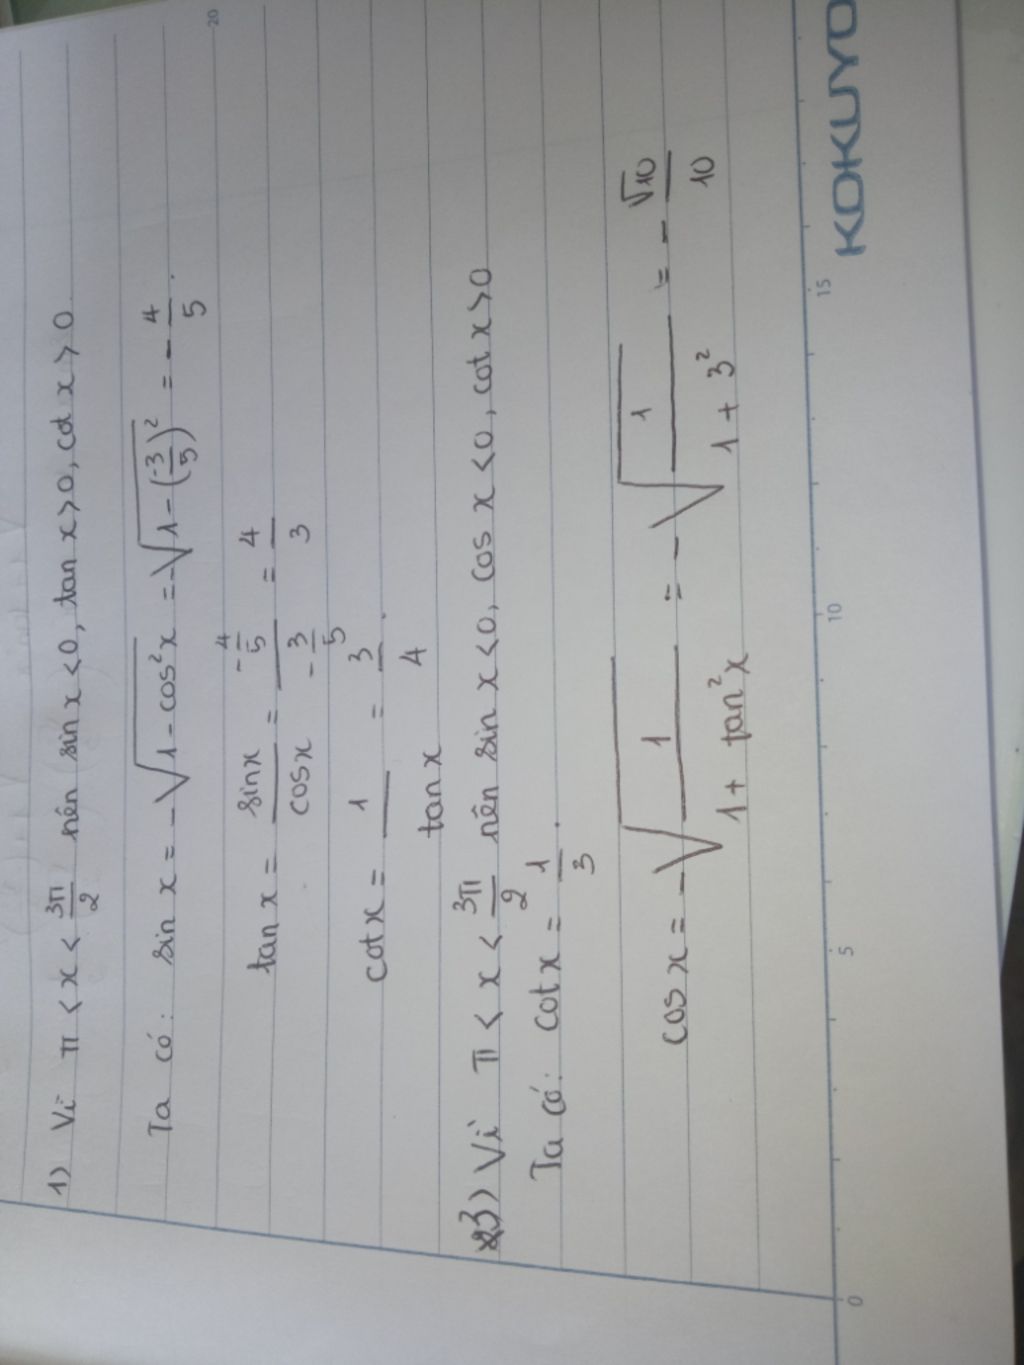 1) Vì π < x < 3π/2 nên sin x < 0, tan x > 0, cot x > 0
Ta có: sin x = -√(1 - cos²x) = -√(1 - (-3/5)²) = -4/5.
tan x = sin x/cos x = (-4/5)/(-3/5) = 4/3
cot x = 1/tan x = 3/4.
3) Vì π < x < 3π/2 nên sin x < 0, cos x < 0, cot x > 0
Ta có: cot x = 1/3.
cos x = -√(1/(1 + tan²x)) = -√(1/(1 + 3²)) = -√10/10
0 5 10 15 20
KOKUYO